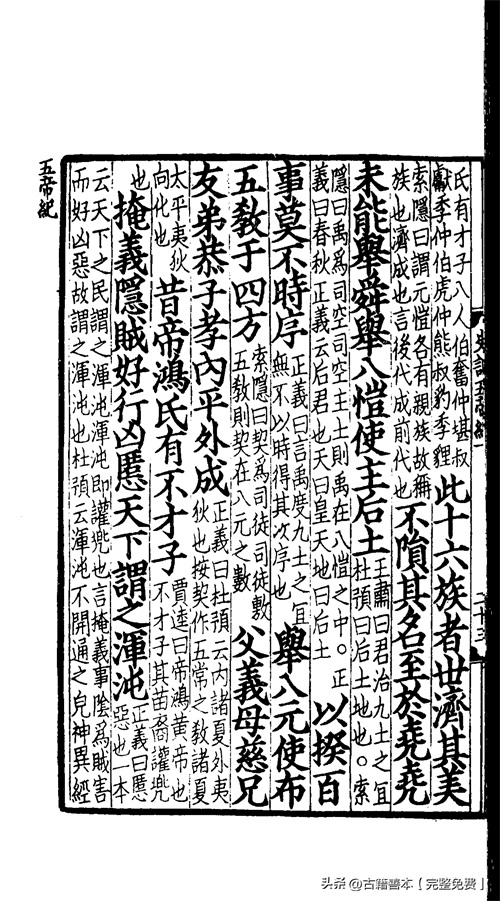 氏有才子八人伯奮仲堪叔
獻季仲伯虎仲熊叔豹季貍
此十六族者世濟其美
索隱曰謂元愷各有親族故稱
族也濟成也言後代成前代也
不隕其名至於堯堯
未能舉舜舉八愷使主后土
王肅曰君治九土之宜
杜預曰后土地也○索
隱曰禹爲司空司空主土則禹在八愷之中○正
義曰春秋正義云后君也天曰皇天地曰后土
以揆百
事莫不時序
正義曰言禹度九土之宜
無不以時得其次序也
舉八元使布
五教于四方
索隱曰契爲司徒司徒敷
五教則契在八元之數
父義母慈兄
友弟恭子孝內平外成
正義曰杜預云内諸夏外夷
狄也按契作五常之教諸夏
太平夷狄
向化也
昔帝鴻氏有不才子
賈逵曰帝鴻黃帝也
不才子其苗裔讙兜
也
掩義隱賊好行凶慝天下謂之渾沌
正義曰慝
惡也一本
云天下之民謂之渾沌渾沌即讙兜也言掩義事陰爲賊害
而好凶惡故謂之渾沌也杜預云渾沌不開通之皃神異經
五帝紀
头条 @古籍善本【完整免费】